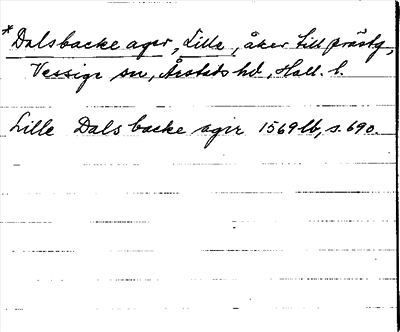 *Dalsbacke ager, Lille, åker till prästg,
Vessige sn, Årstads hd, Hall. l.
Lille Dals backe agir 1569 lb, s. 690.